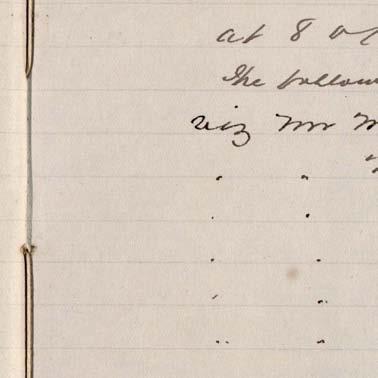 at 8 o
the follow
viz Mr M
" "
" "
" "
" "
" "